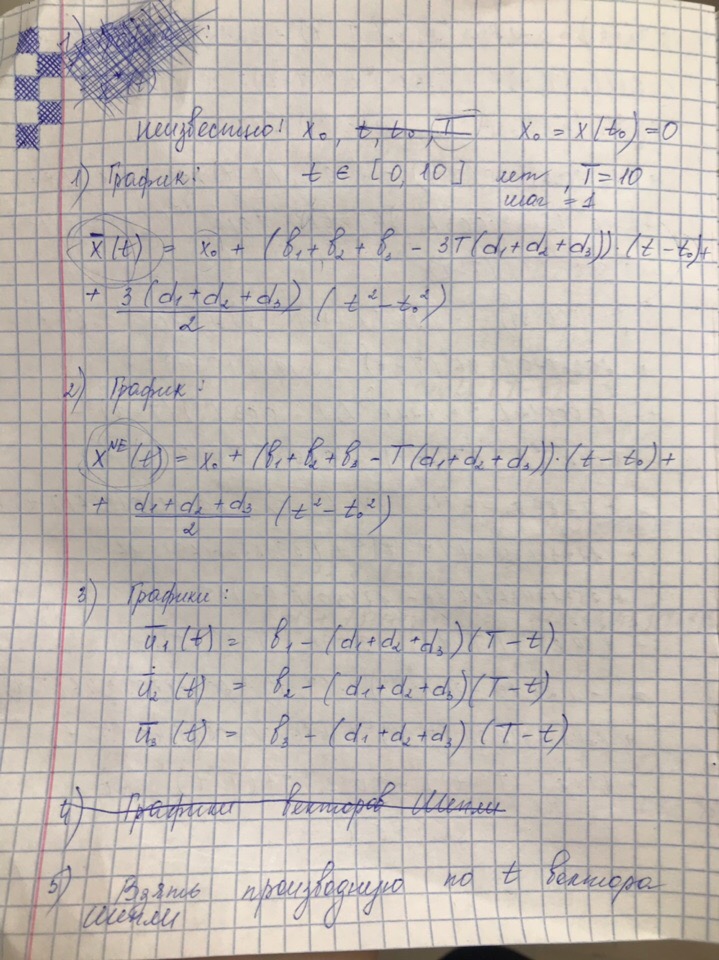 1)
неизвестно! x₀, t, t₀, T x₀ = x(t₀) = 0
1) График: t ∈ [0, 10] лет, T = 10
шаг = 1
x̄(t) = x₀ + (b₁ + b₂ + b₃ - 3T(d₁+d₂+d₃))·(t-t₀)+
+ 3(d₁+d₂+d₃)/2 (t²-t₀²)
2) График:
x^NE(t) = x₀ + (b₁+b₂+b₃ - T(d₁+d₂+d₃))·(t-t₀)+
+ d₁+d₂+d₃/2 (t²-t₀²)
3) Графики:
ū₁(t) = b₁-(d₁+d₂+d₃)(T-t)
ū₂(t) = b₂-(d₁+d₂+d₃)(T-t)
ū₃(t) = b₃-(d₁+d₂+d₃)(T-t)
4) Графики векторов Шепли
5) Взять производную по t вектора
Шепли